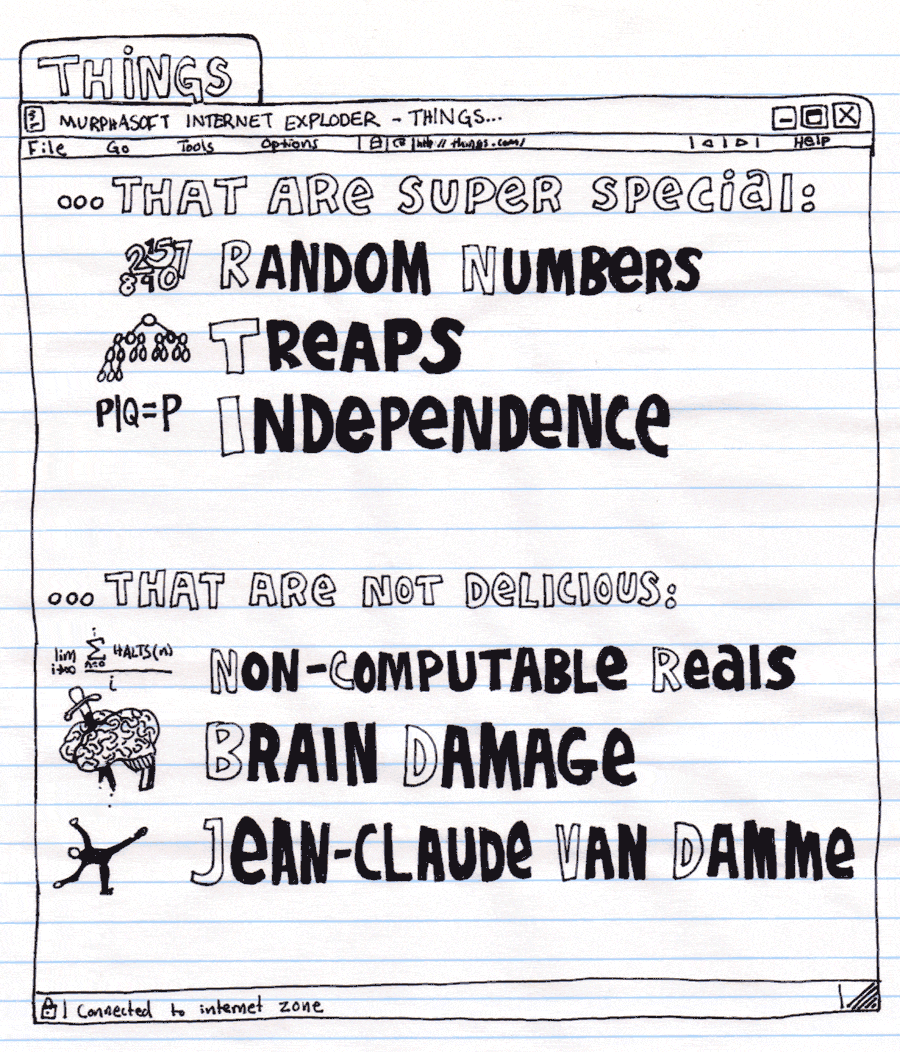 THiNGS
MURPHASOFT INTERNET EXPLODER - THINGS...
File Go Tools Options http://things.com/ Help
...THAT ARe SUPeR SPecial:
2157
8940 RANDOM NUMBeRS
TReAPS
P|Q=P INDePeNDeNCe
...THAT ARe NOT DeLICIOUS:
lim i→∞ i Σ n=0 HALTS(n) / i NON-COMPUTABLe Reals
BRAIN DAMAGe
JeAN-CLAUDe VAN DAMMe
Connected to internet zone